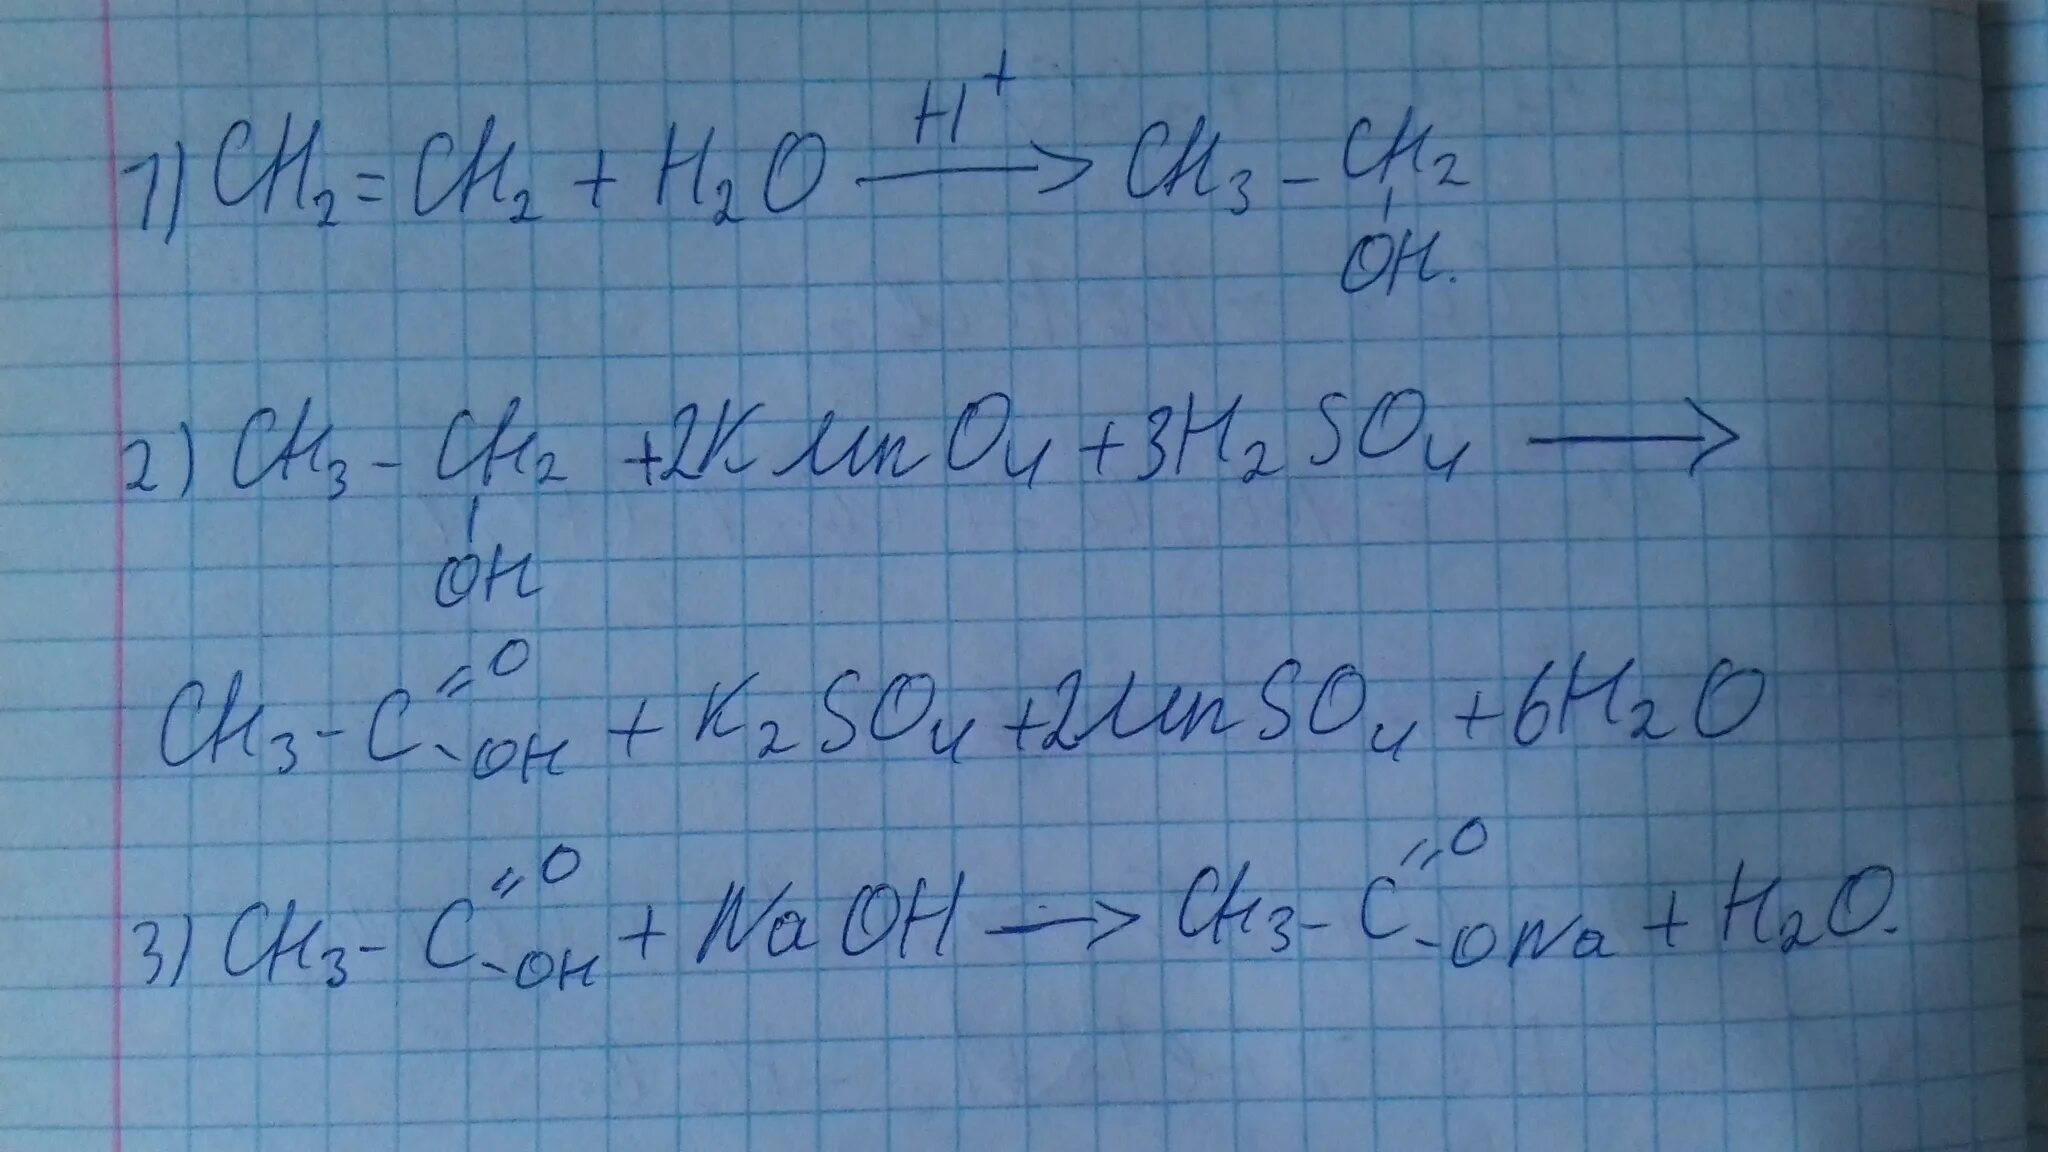 1) CH₂=CH₂ + H₂O H⁺→ CH₃-CH₂
OH.
2) CH₃-CH₂ +2KMnO₄ +3H₂SO₄ →
OH
CH₃-C=O-OH + K₂SO₄ +2MnSO₄ +6H₂O
3) CH₃-C=O-OH + NaOH → CH₃-C=O-ONa + H₂O.